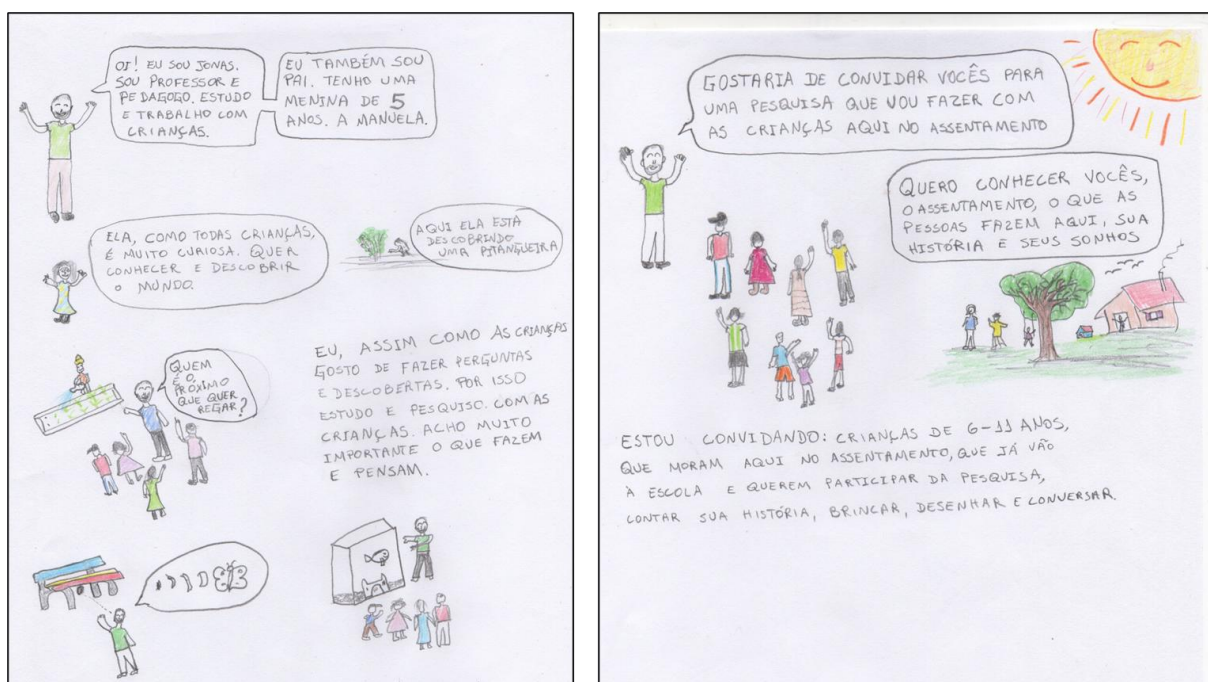 OI! EU SOU JONAS.
SOU PROFESSOR E
PEDAGOGO. ESTUDO
E TRABALHO COM
CRIANÇAS.
EU TAMBÉM SOU
PAI. TENHO UMA
MENINA DE 5
ANOS. A MANUELA.
ELA, COMO TODAS CRIANÇAS,
É MUITO CURIOSA. QUER
CONHECER E DESCOBRIR
O MUNDO.
AQUI ELA ESTÁ
DESCOBRINDO
UMA PITANGUEIRA
QUEM
É O
PRÓXIMO
QUE QUER
REGAR?
EU, ASSIM COMO AS CRIANÇAS
GOSTO DE FAZER PERGUNTAS
E DESCOBERTAS. POR ISSO
ESTUDO E PESQUISO. COM AS
CRIANÇAS. ACHO MUITO
IMPORTANTE O QUE FAZEM
E PENSAM.
GOSTARIA DE CONVIDAR VOCÊS PARA
UMA PESQUISA QUE VOU FAZER COM
AS CRIANÇAS AQUI NO ASSENTAMENTO
QUERO CONHECER VOCÊS,
O ASSENTAMENTO, O QUE AS
PESSOAS FAZEM AQUI, SUA
HISTÓRIA E SEUS SONHOS
ESTOU CONVIDANDO: CRIANÇAS DE 6-11 ANOS,
QUE MORAM AQUI NO ASSENTAMENTO, QUE JÁ VÃO
À ESCOLA E QUEREM PARTICIPAR DA PESQUISA,
CONTAR SUA HISTÓRIA, BRINCAR, DESENHAR E CONVERSAR.